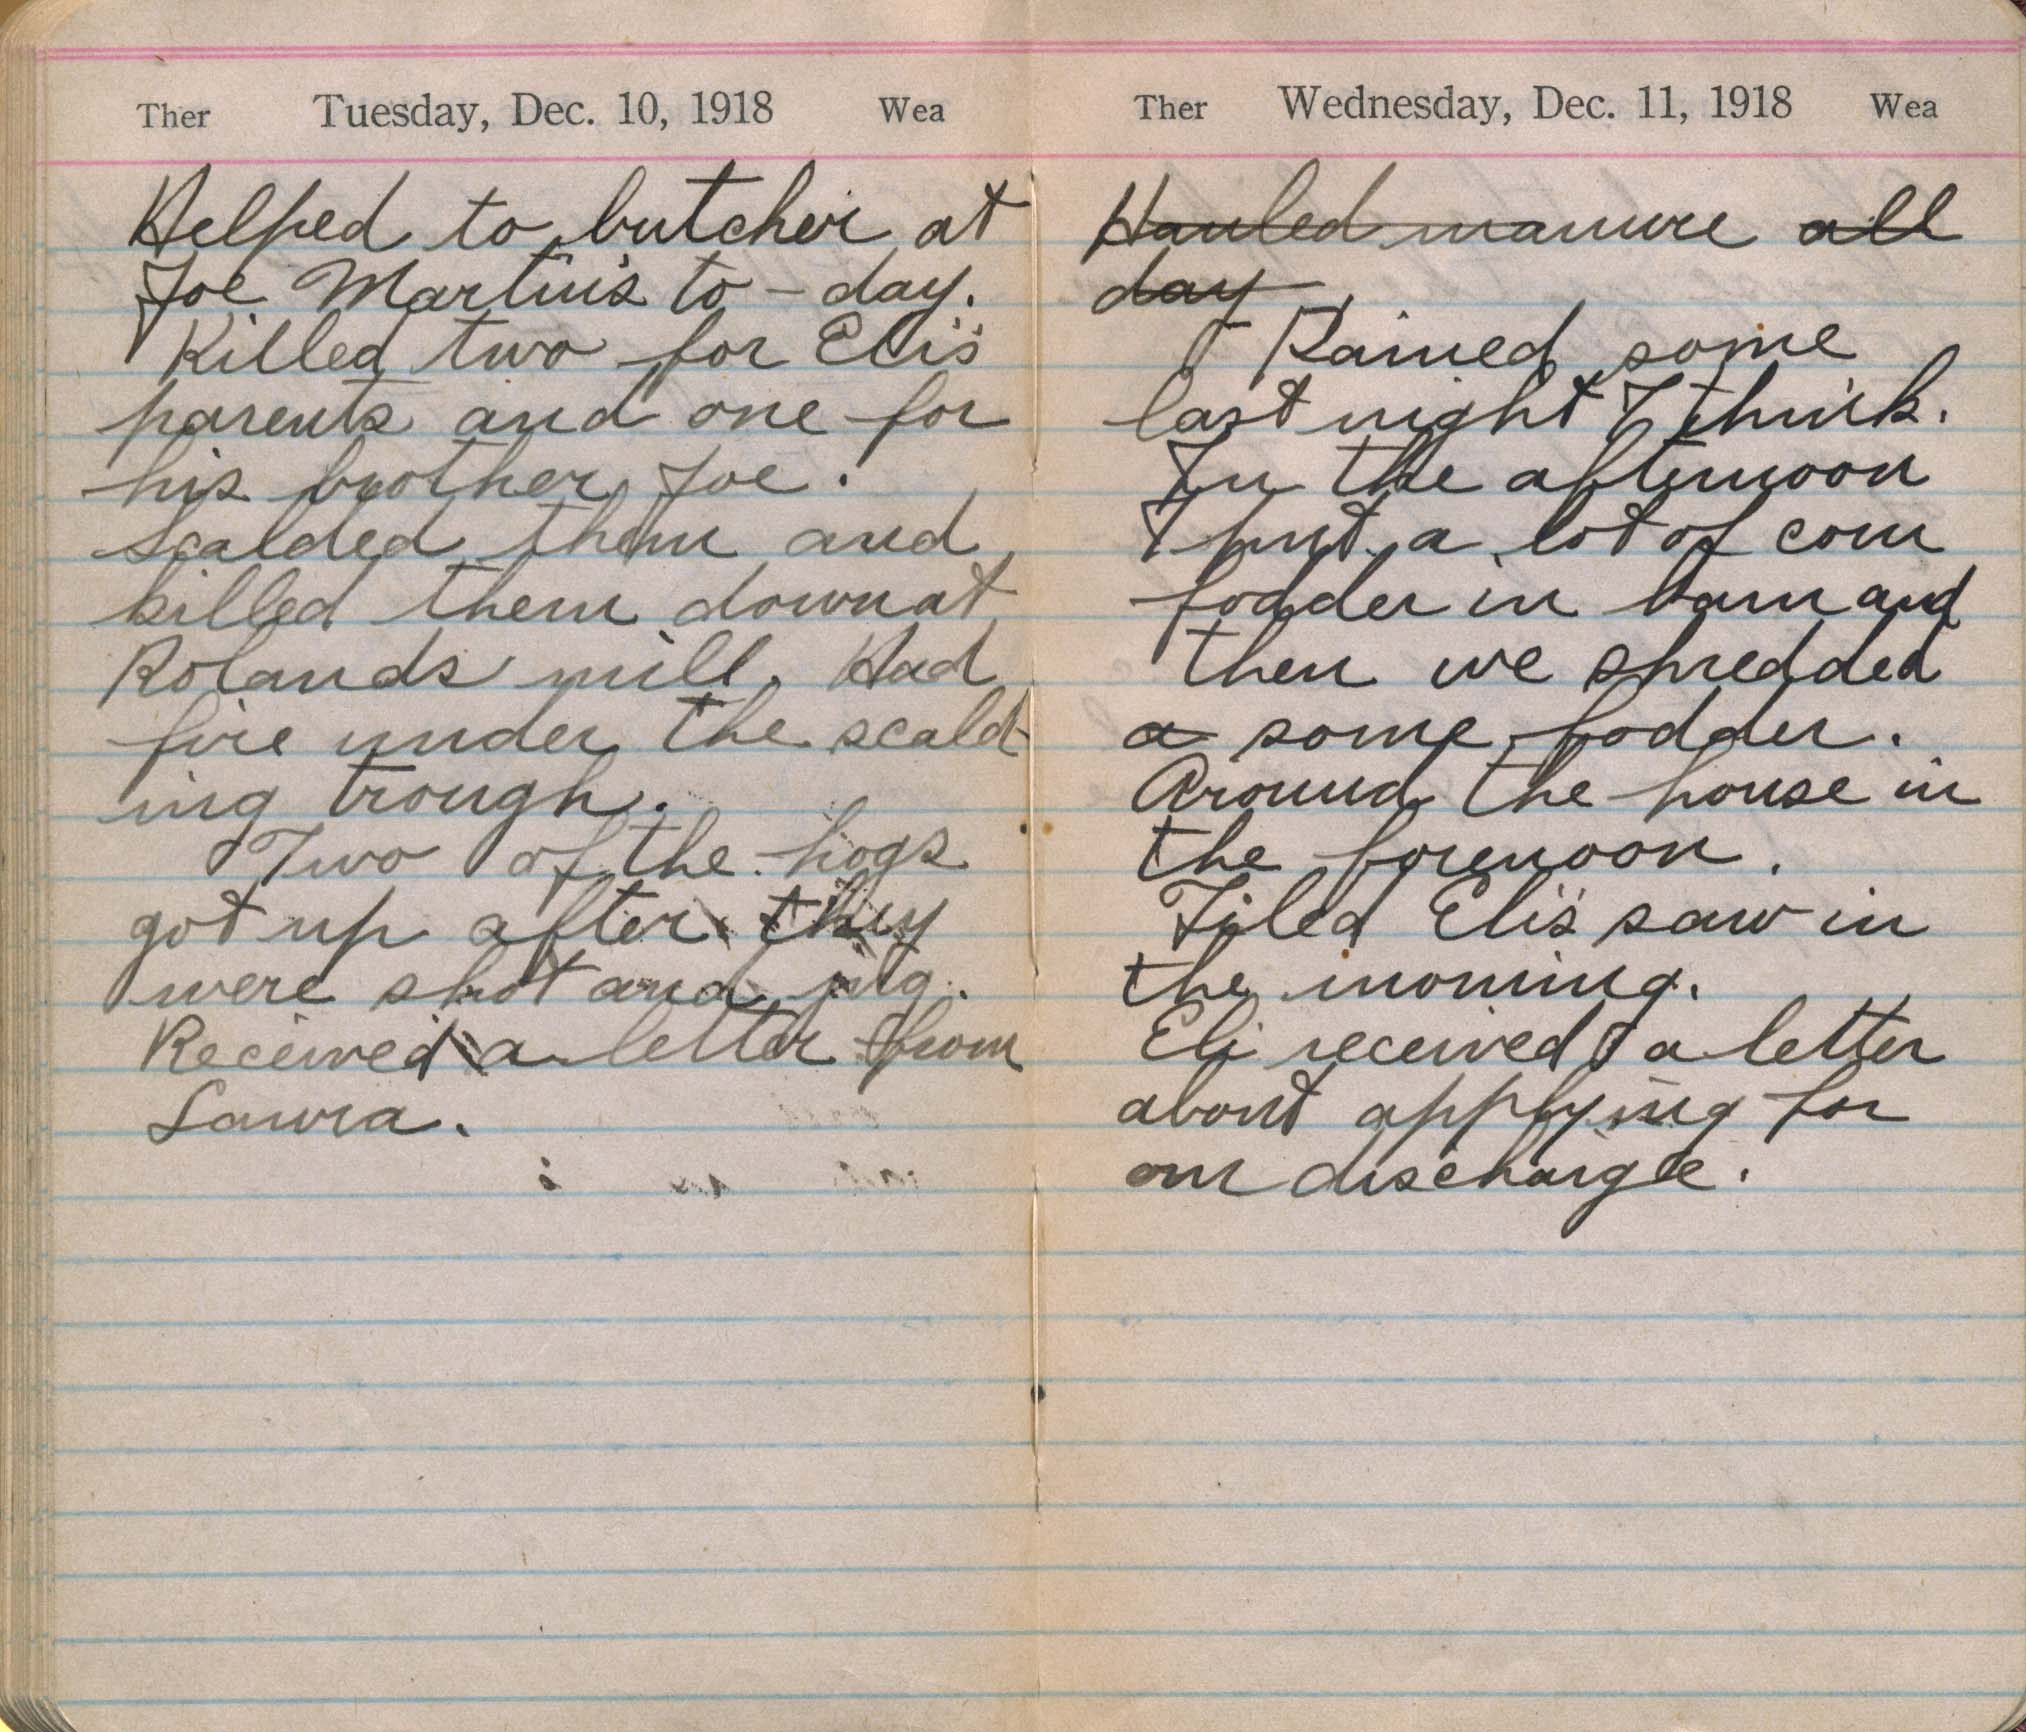 Ther Tuesday, Dec. 10, 1918 Wea
Helped to butcher at
Joe Martin's to-day.
Killed two for Eli's
parents and one for
his brother Joe.
Scalded them and
killed them down at
Rolands mill. Had
fire under the scald-
ing trough.
Two of the hogs
got up after they
were shot and
Received a letter from
Laura.
Ther Wednesday, Dec. 11, 1918 Wea
Hauled manure all
day
Rained some
last night I think.
In the afternoon
I put a lot of corn
fodder in barn and
then we shredded
a some fodder.
Around the house in
the forenoon.
Filed Eli's saw in
the morning.
Eli received a letter
about applying for
our discharge.